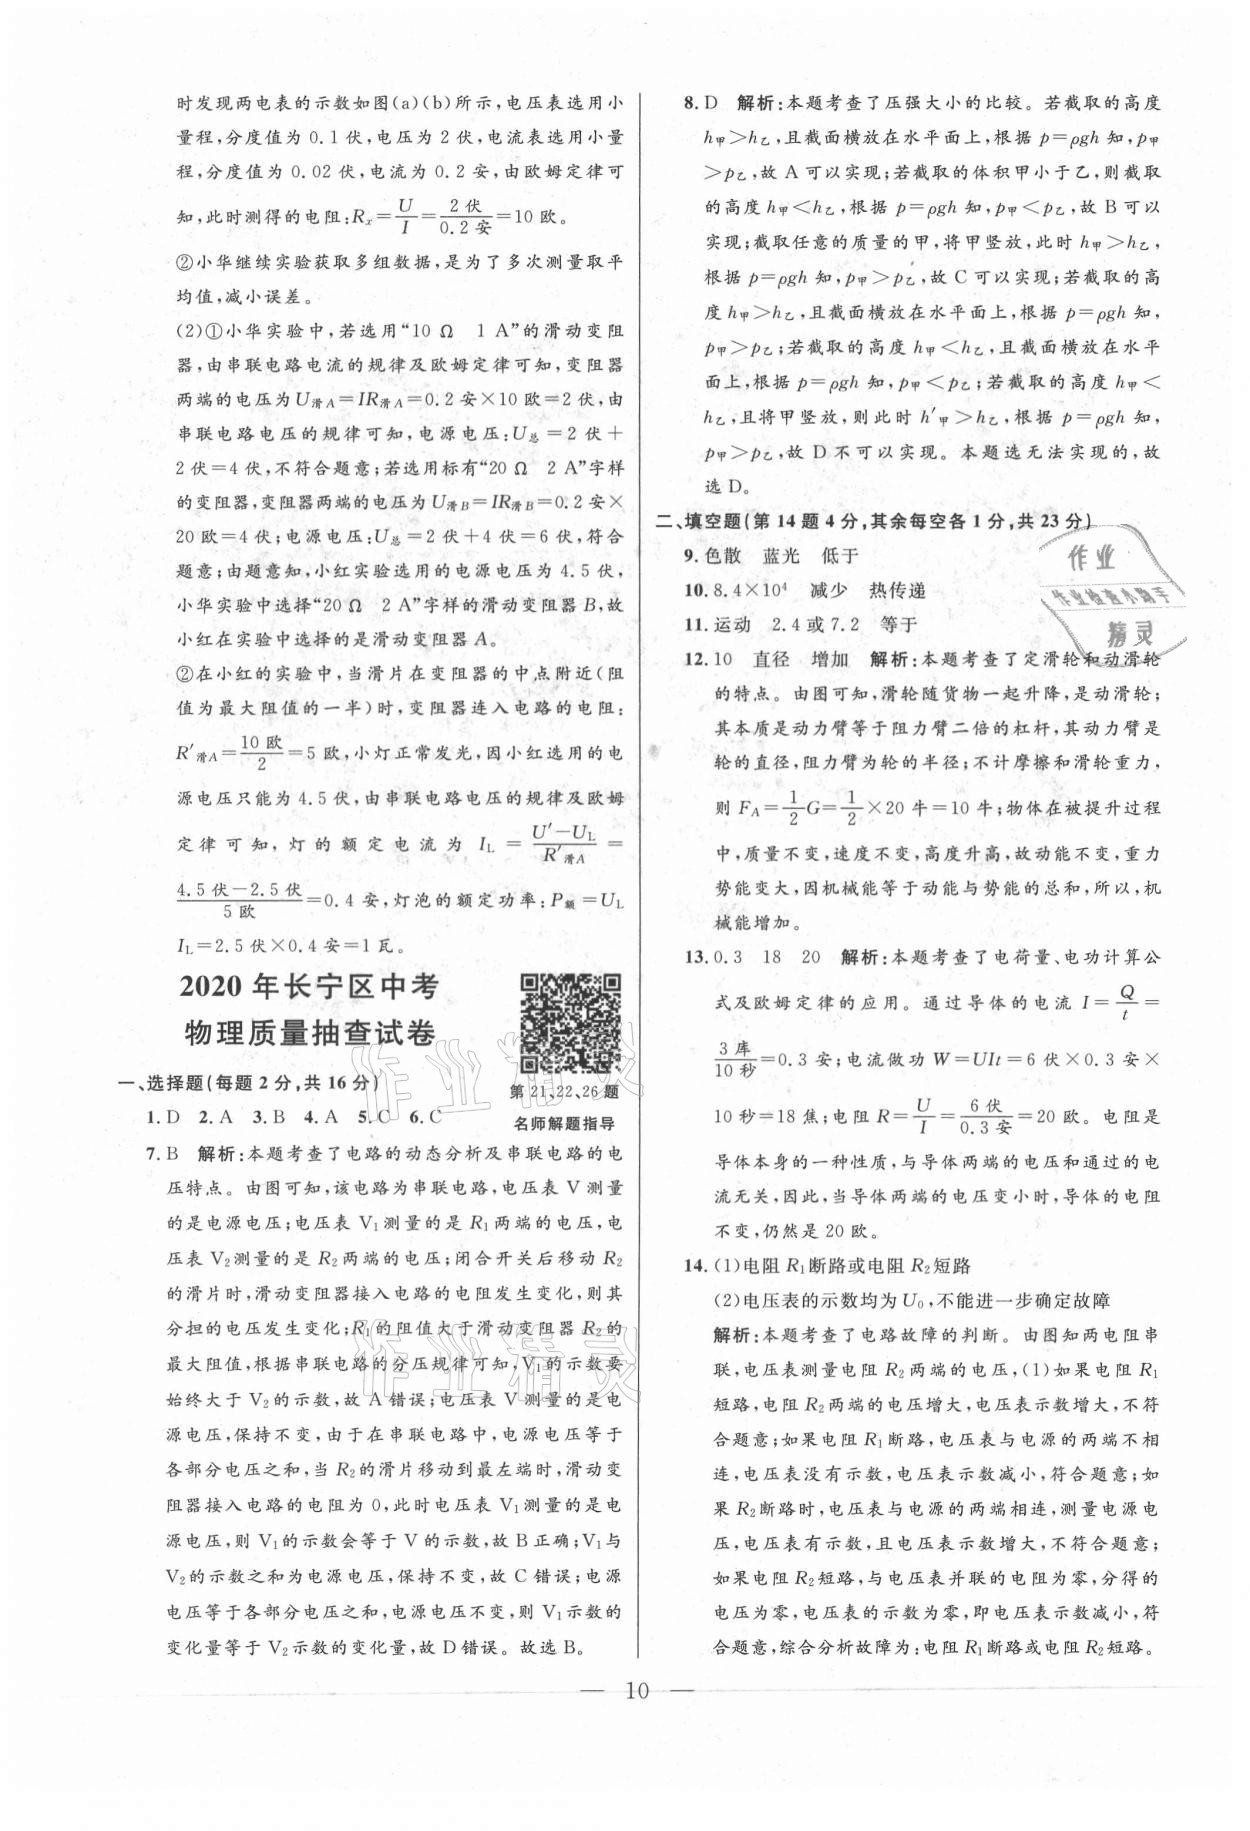 时发现两电表的示数如图(a)(b)所示,电压表选用小
量程,分度值为 0.1 伏,电压为 2 伏,电流表选用小量
程,分度值为 0.02 伏,电流为 0.2 安,由欧姆定律可
知,此时测得的电阻:Rₓ=U/I=2伏/0.2安=10 欧。
②小华继续实验获取多组数据,是为了多次测量取平
均值,减小误差。
(2)①小华实验中,若选用“10 Ω 1 A”的滑动变阻
器,由串联电路电流的规律及欧姆定律可知,变阻器
两端的电压为 U滑A=IR滑A=0.2安×10欧=2伏,由
串联电路电压的规律可知,电源电压:U总=2 伏+
2伏=4伏,不符合题意;若选用标有“20 Ω 2 A”字样
的变阻器,变阻器两端的电压为 U滑B=IR滑B=0.2安×
20欧=4伏;电源电压:U总=2伏+4伏=6伏,符合
题意;由题意知,小红实验选用的电源电压为 4.5 伏,
小华实验中选择“20 Ω 2 A”字样的滑动变阻器 B,故
小红在实验中选择的是滑动变阻器 A。
②在小红的实验中,当滑片在变阻器的中点附近(阻
值为最大阻值的一半)时,变阻器连入电路的电阻:
R′滑A=10欧/2=5 欧,小灯正常发光,因小红选用的电
源电压只能为 4.5 伏,由串联电路电压的规律及欧姆
定律可知,灯的额定电流为 I_L=(U′−U_L)/R′滑A=
(4.5伏−2.5伏)/5欧=0.4 安,灯泡的额定功率:P额=U_L
I_L=2.5 伏×0.4 安=1 瓦。
2020 年长宁区中考
物理质量抽查试卷
第 21、22、26 题
名师解题指导
一、选择题(每题 2 分,共 16 分)
1. D 2. A 3. B 4. A 5. C 6. C
7. B 解析:本题考查了电路的动态分析及串联电路的电
压特点。由图可知,该电路为串联电路,电压表 V 测量
的是电源电压;电压表 V₁ 测量的是 R₁ 两端的电压,电
压表 V₂ 测量的是 R₂ 两端的电压;闭合开关后移动 R₂
的滑片时,滑动变阻器接入电路的电阻发生变化,则其
分担的电压发生变化;R₁的阻值大于滑动变阻器 R₂的
最大阻值,根据串联电路的分压规律可知,V₁的示数要
始终大于 V₂ 的示数,故 A 错误;电压表 V 测量的是电
源电压,保持不变,由于在串联电路中,电源电压等于
各部分电压之和,当 R₂的滑片移动到最左端时,滑动变
阻器接入电路的电阻为 0,此时电压表 V₁ 测量的是电
源电压,则 V₁的示数会等于 V 的示数,故 B正确;V₁与
V₂的示数之和为电源电压,保持不变,故 C 错误;电源
电压等于各部分电压之和,电源电压不变,则 V₁示数的
变化量等于 V₂ 示数的变化量,故 D错误。故选 B。
8. D 解析:本题考查了压强大小的比较。若截取的高度
h甲>h乙,且截面横放在水平面上,根据 p=ρgh 知,p甲
>p乙,故 A 可以实现;若截取的体积甲小于乙,则截取
的高度 h甲<h乙,根据 p=ρgh 知,p甲<p乙,故 B 可以
实现;截取任意的质量的甲,将甲竖放,此时 h甲>h乙,
根据 p=ρgh 知,p甲>p乙,故 C 可以实现;若截取的高
度 h甲>h乙,且截面横放在水平面上,根据 p=ρgh 知,
p甲>p乙;若截取的高度 h甲<h乙,且截面横放在水平
面上,根据 p=ρgh 知,p甲<p乙;若截取的高度 h甲<
h乙,且将甲竖放,则此时 h′甲>h乙,根据 p=ρgh 知,
p甲>p乙,故 D 不可以实现。本题选无法实现的,故
选 D。
二、填空题(第 14 题 4 分,其余每空各 1 分,共 23 分)
9. 色散 蓝光 低于
10. 8.4×10⁴ 减少 热传递
11. 运动 2.4 或 7.2 等于
12. 10 直径 增加 解析:本题考查了定滑轮和动滑轮
的特点。由图可知,滑轮随货物一起升降,是动滑轮;
其本质是动力臂等于阻力臂二倍的杠杆,其动力臂是
轮的直径,阻力臂为轮的半径;不计摩擦和滑轮重力,
则 F_A=1/2G=1/2×20 牛=10 牛;物体在被提升过程
中,质量不变,速度不变,高度升高,故动能不变,重力
势能变大,因机械能等于动能与势能的总和,所以,机
械能增加。
13. 0.3 18 20 解析:本题考查了电荷量、电功计算公
式及欧姆定律的应用。通过导体的电流 I=Q/t=
3库/10秒=0.3 安;电流做功 W=UIt=6 伏×0.3 安×
10 秒=18 焦;电阻 R=U/I=6伏/0.3安=20 欧。电阻是
导体本身的一种性质,与导体两端的电压和通过的电
流无关,因此,当导体两端的电压变小时,导体的电阻
不变,仍然是 20 欧。
14. (1)电阻 R₁断路或电阻 R₂短路
(2)电压表的示数均为 U₀,不能进一步确定故障
解析:本题考查了电路故障的判断。由图知两电阻串
联,电压表测量电阻 R₂ 两端的电压,(1)如果电阻 R₁
短路,电阻 R₂两端的电压增大,电压表示数增大,不符
合题意;如果电阻 R₁断路,电压表与电源的两端不相
连,电压表没有示数,电压表示数减小,符合题意;如
果 R₂断路时,电压表与电源的两端相连,测量电源电
压,电压表有示数,且电压表示数增大,不符合题意;
如果电阻 R₂ 短路,与电压表并联的电阻为零,分得的
电压为零,电压表的示数为零,即电压表示数减小,符
合题意,综合分析故障为:电阻 R₁断路或电阻 R₂ 短路。
作业
作业检查小助手
精灵
作业精灵
作业精灵
— 10 —